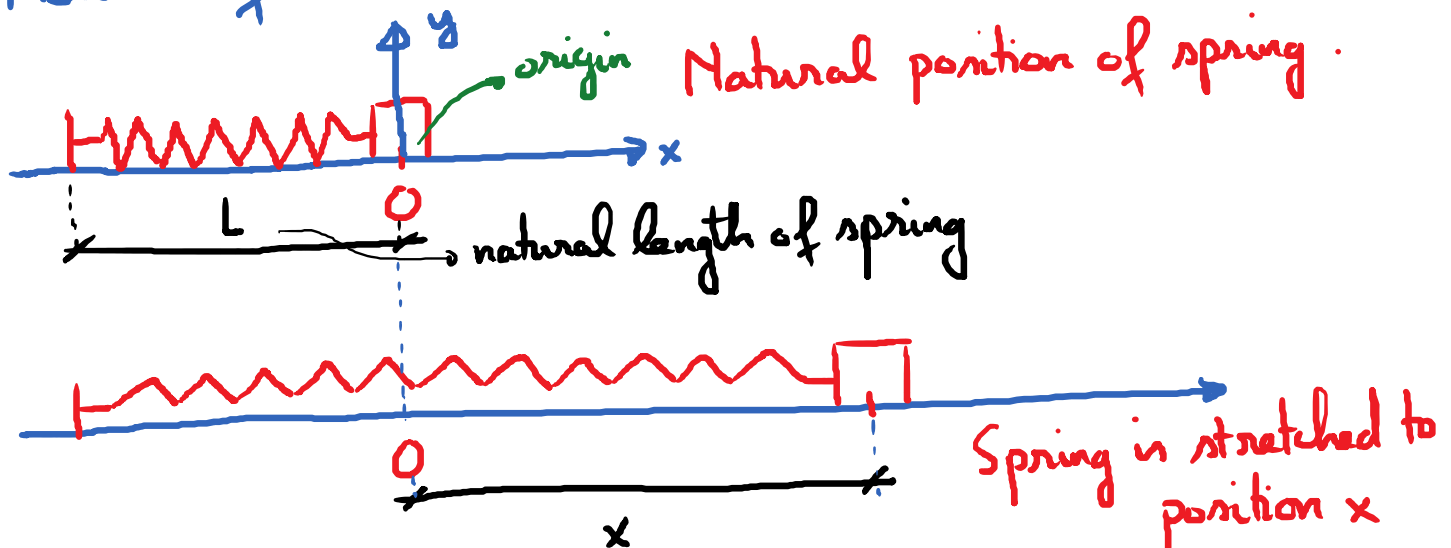 y
origin
Natural position of spring.
x
L
O
natural length of spring
O
Spring is stretched to
position x
x